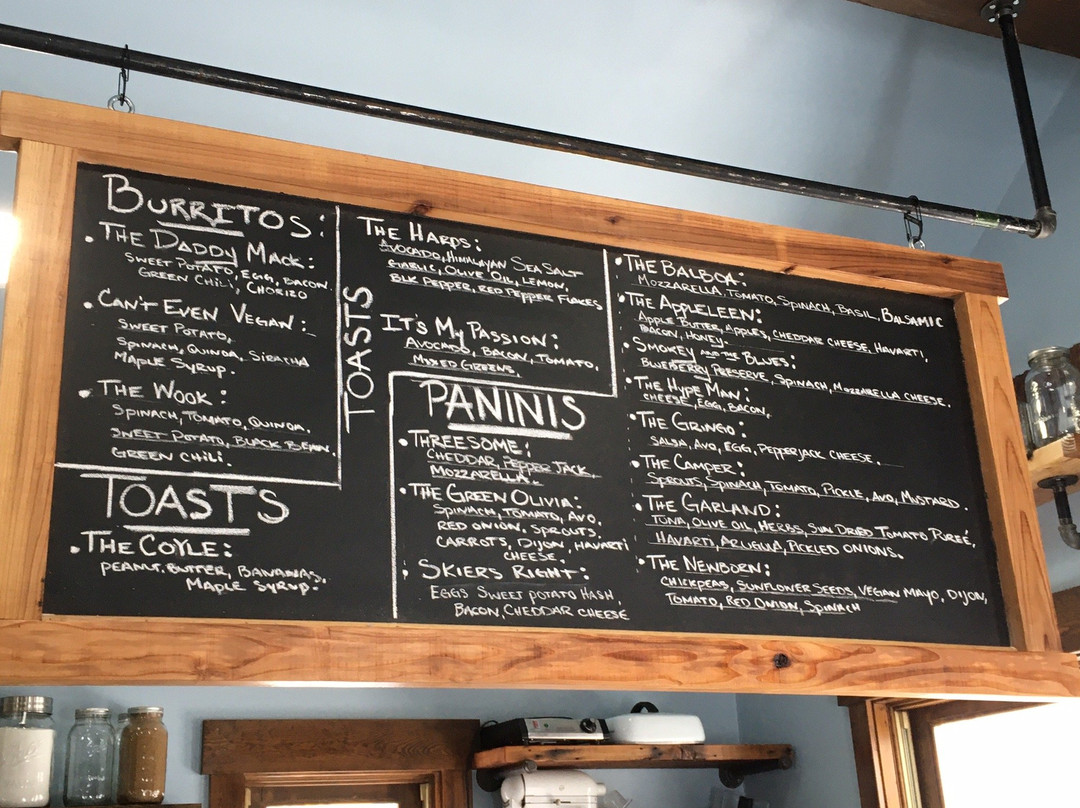 BURRITOS:
• THE DADDY MACK:
SWEET POTATO, EGG, BACON,
GREEN CHILI, CHORIZO
• CAN'T EVEN VEGAN:
SWEET POTATO,
SPINACH, QUINOA, SIRACHA
MAPLE SYRUP.
• THE WOOK:
SPINACH, TOMATO, QUINOA,
SWEET POTATO, BLACK BEAN,
GREEN CHILI.
TOASTS
• THE COYLE:
PEANUT BUTTER, BANANAS,
MAPLE SYRUP.
TOASTS
THE HARDS:
AVOCADO, HIMALAYAN SEA SALT
GARLIC, OLIVE OIL, LEMON,
BLK PEPPER, RED PEPPER FLAKES
IT'S MY PASSION:
AVOCADO, BACON, TOMATO,
MIXED GREENS.
PANINIS
• THREESOME:
CHEDDAR, PEPPER JACK,
MOZZARELLA.
• THE GREEN OLIVIA:
SPINACH, TOMATO, AVO,
RED ONION, SPROUTS,
CARROTS, DIJON, HAVARTI
CHEESE.
• SKIERS RIGHT:
EGGS SWEET POTATO HASH,
BACON, CHEDDAR CHEESE
• THE BALBOA:
MOZZARELLA, TOMATO, SPINACH, BASIL, BALSAMIC
• THE APPLELEEN:
APPLE BUTTER, APPLES, CHEDDAR CHEESE, HAVARTI,
BACON, HONEY.
• SMOKEY AND THE BLUES:
BLUEBERRY PRESERVE, SPINACH, MOZZARELLA CHEESE.
• THE HYPE MAN:
CHEESE, EGG, BACON,
• THE GRINGO:
SALSA, AVO, EGG, PEPPERJACK CHEESE.
• THE CAMPER:
SPROUTS, SPINACH, TOMATO, PICKLE, AVO, MUSTARD.
• THE GARLAND:
TUNA, OLIVE OIL, HERBS, SUN DRIED TOMATO PUREÉ,
HAVARTI, ARUGULA, PICKLED ONIONS.
• THE NEWBORN:
CHICKPEAS, SUNFLOWER SEEDS, VEGAN MAYO, DIJON,
TOMATO, RED ONION, SPINACH